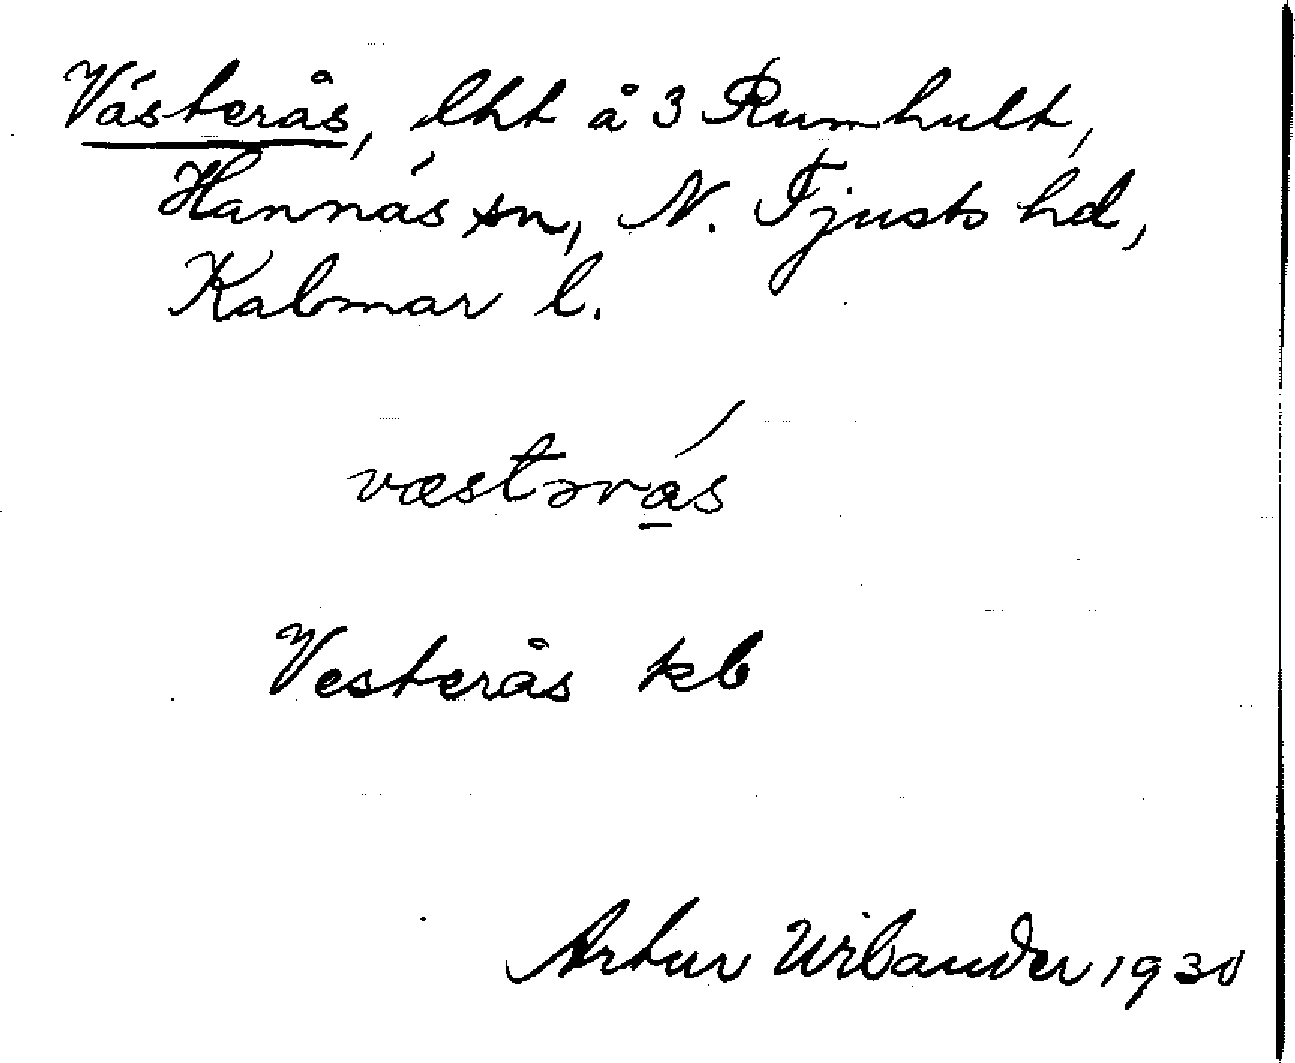 Västerås, lht å 3 Rumhult,
Hannäs sn, N. Tjusts hd,
Kalmar l.
væstərås
Vesterås kb
Artur Wilander 1930